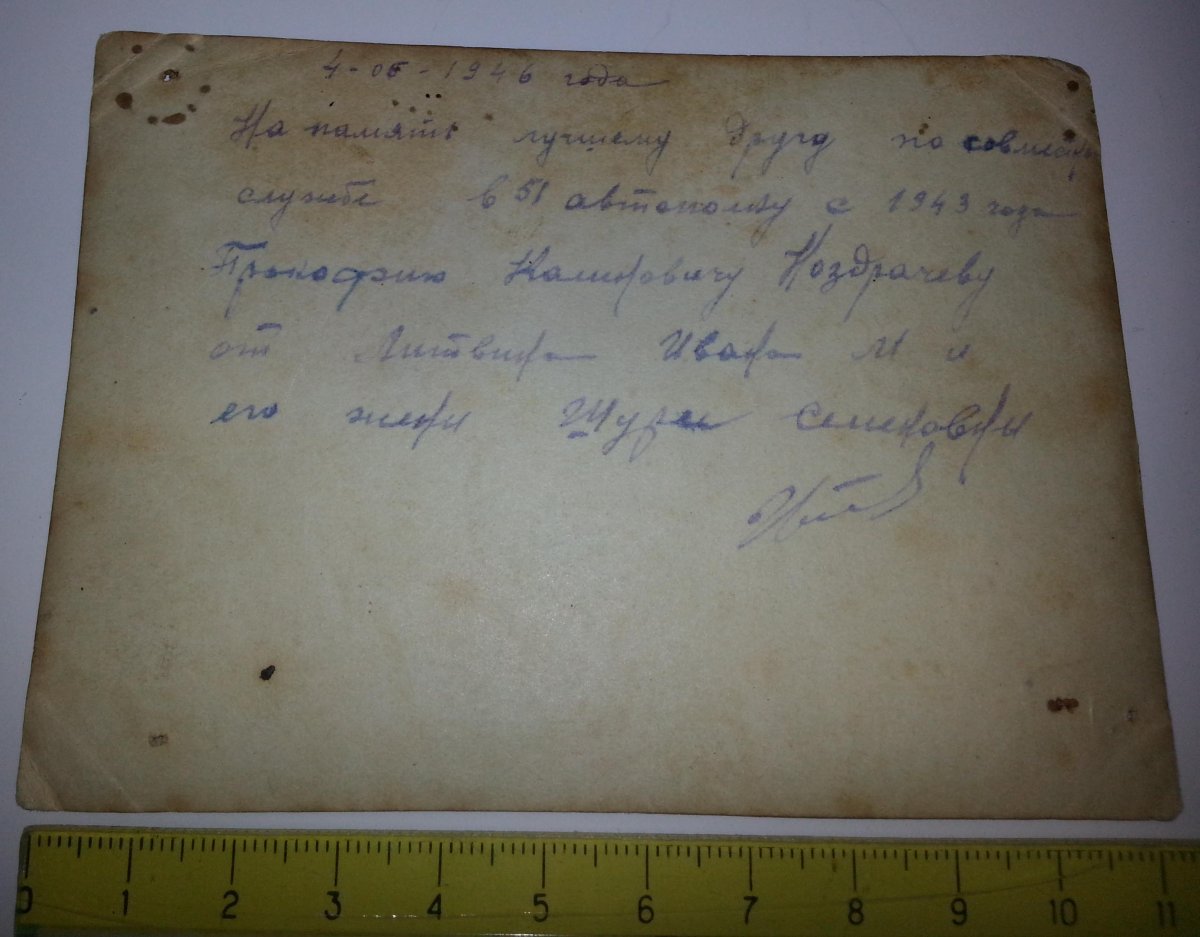 4-05-1946 года
На память лучшему другу по совместн
службе в 51 автополку с 1943 года
Прокофию Калиновичу Ноздрачеву
от Литвина Ивана М и
его жены Шуры Семеновны
0 1 2 3 4 5 6 7 8 9 10 11